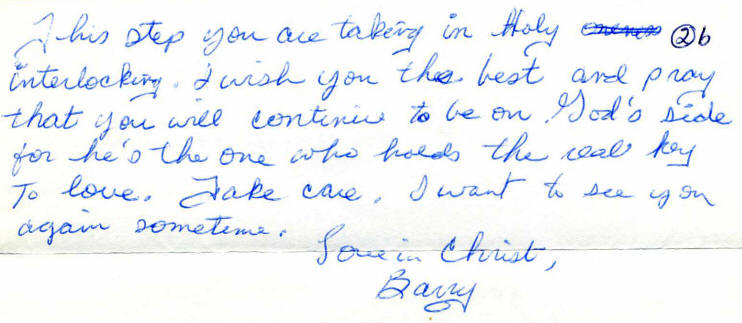 This step you are taking in Holy oneness ②b
interlocking. I wish you the best and pray
that you will continue to be on God's side
for he's the one who holds the real key
To love. Take care. I want to see you
again sometime.
Love in Christ,
Barry